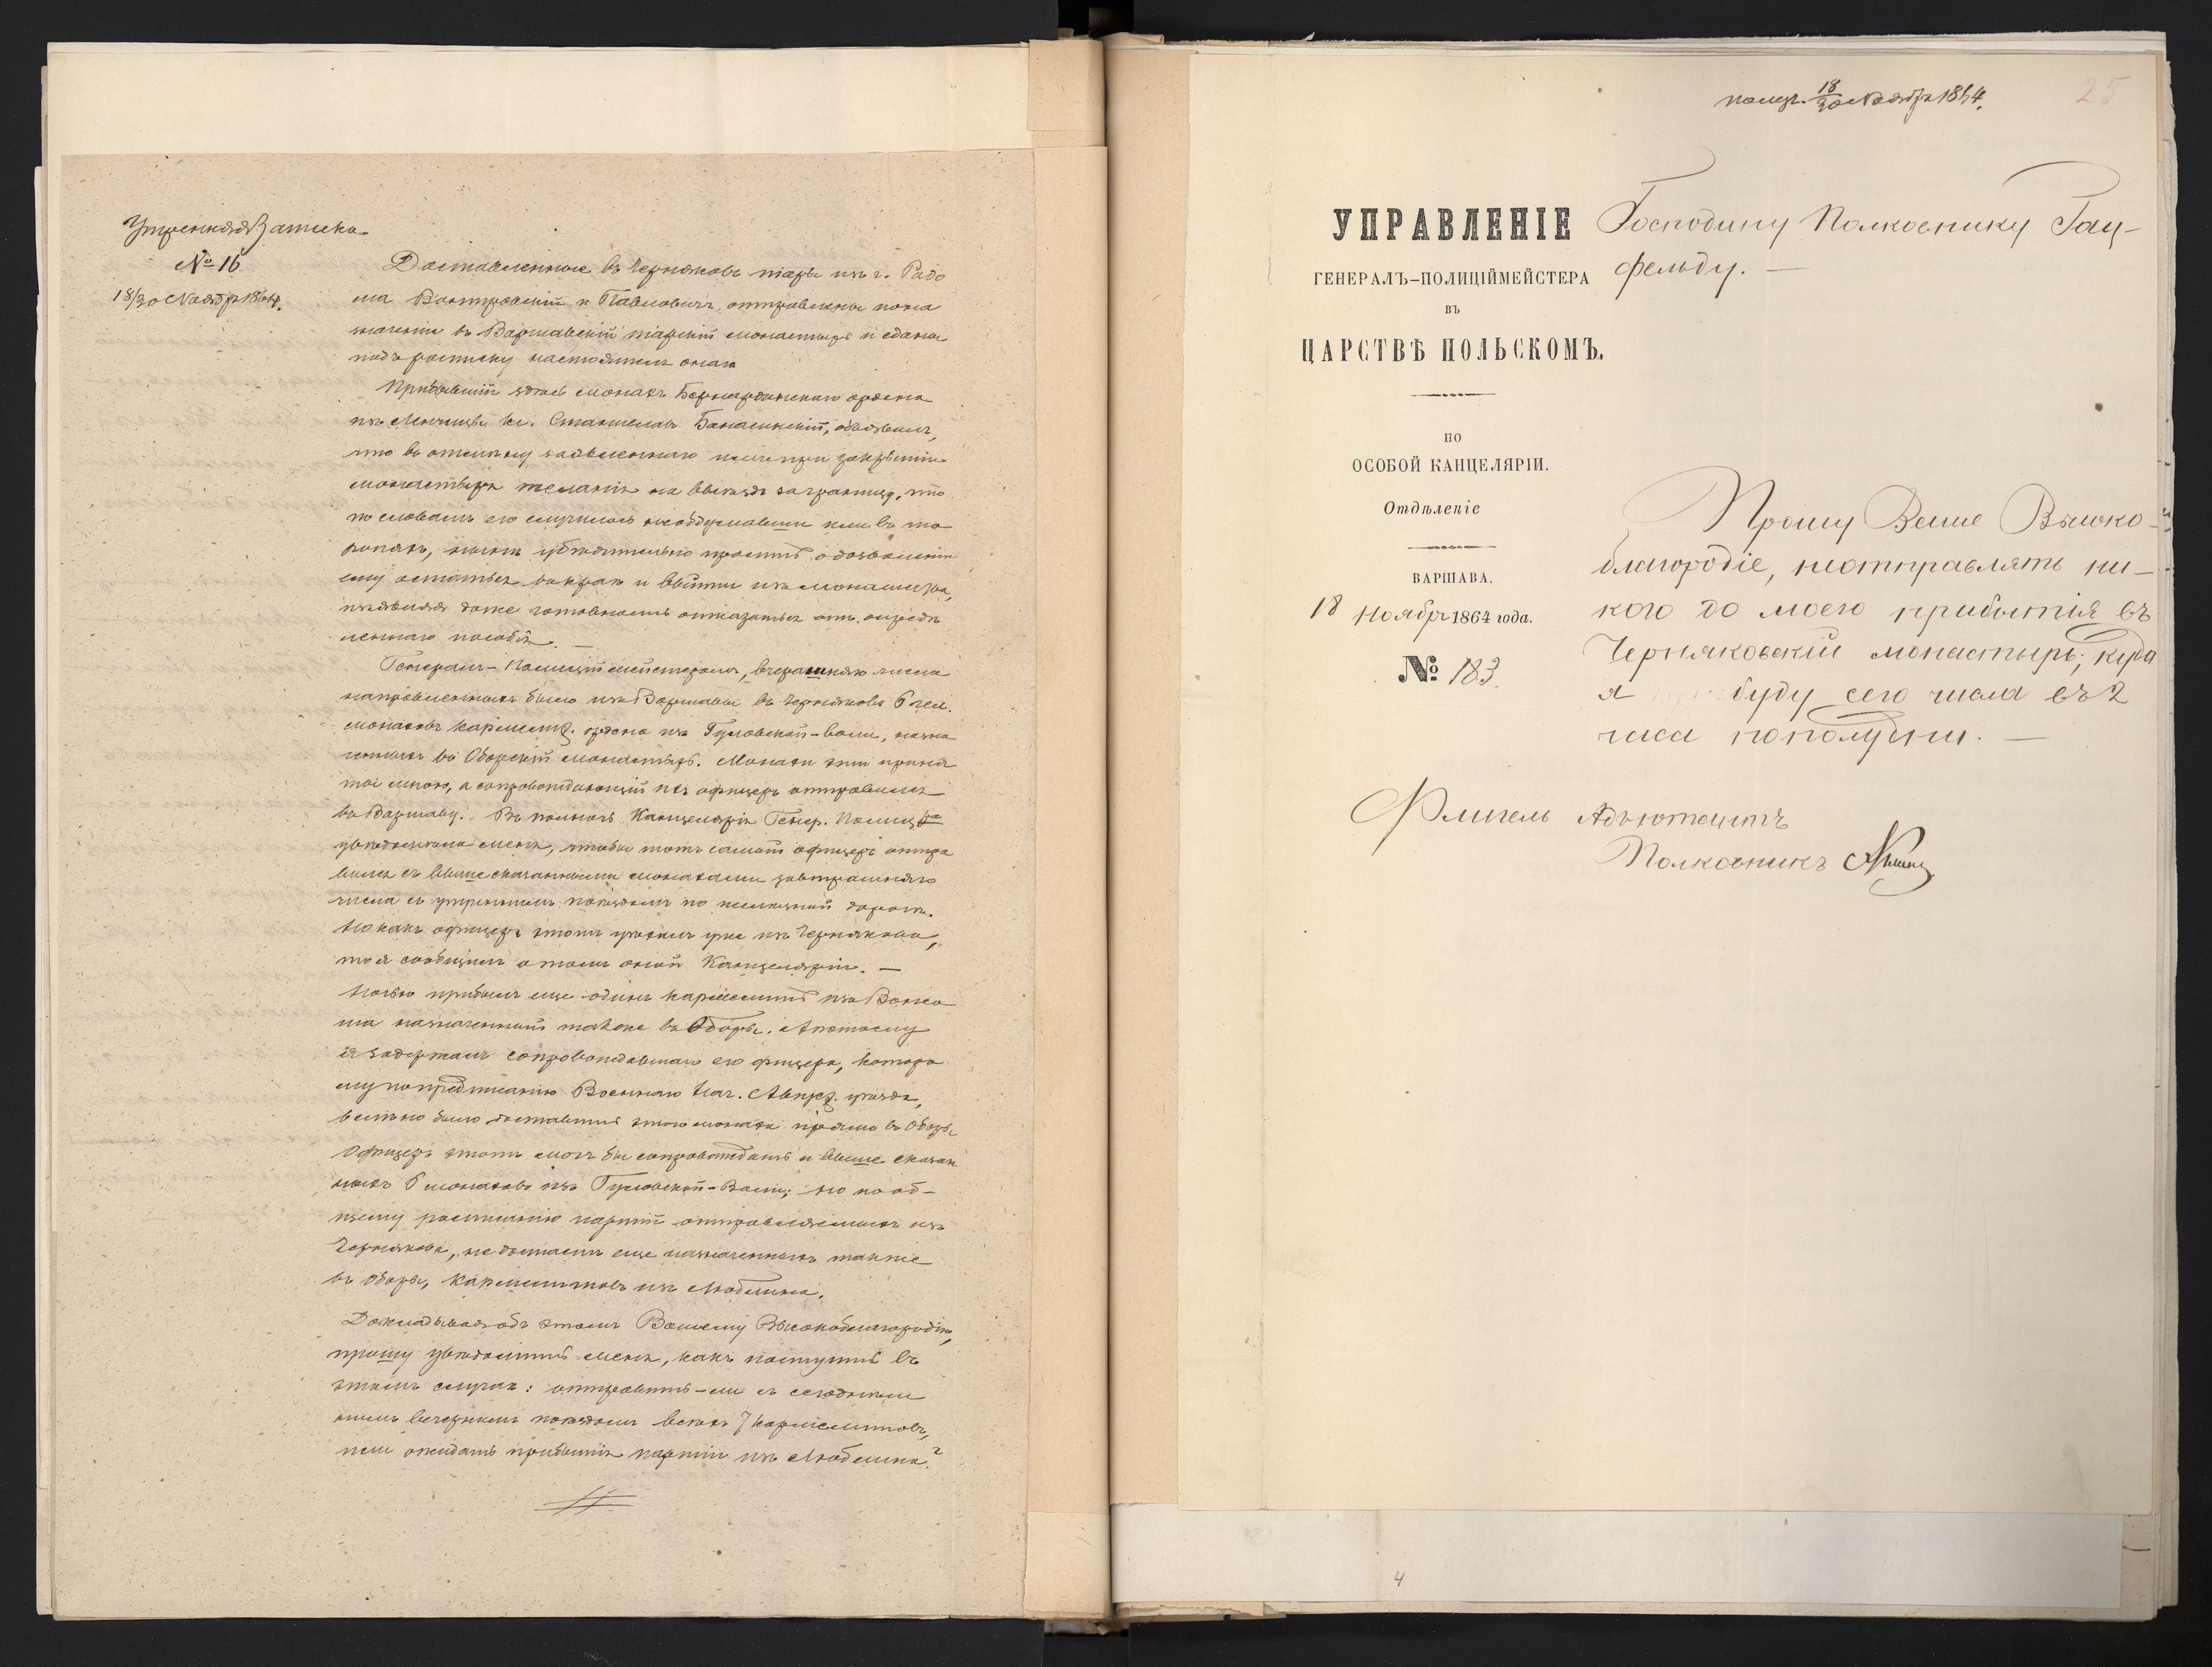 Утренняя Записка
№ 16
18/30 Ноября 1864.
Доставленные въ Черняковъ піары изъ г. Радо
ма и Павловичъ, отправлены по на
значенію въ Варшавскій піарскій монастырь и сданы
подъ росписку настоятеля онаго
Прибывшій здѣсь монахъ Бернардинскаго ордена
изъ Ленчицы кс. Станиславъ объявилъ,
что въ отмѣну заявленнаго имъ при закрытіи
монастыря желанія на выѣздъ заграницу, что
по словамъ его случилось необдумавши или въ то
ропяхъ, нынѣ убѣдительно проситъ о дозволеніи
ему остаться въ краѣ и выйти изъ монашества,
изъявляя даже готовность отказаться отъ опредѣ
леннаго пособія. —
Генералъ-Полиціймейстеромъ, вчерашняго числа
направленныхъ было изъ Варшавы въ Черняковъ 6 чел.
монаховъ кармелит. ордена изъ Гуловской-воли, назна
ченныхъ въ Оборскій монастырь. Монахи эти приня
ты мною, а сопровождающій ихъ офицеръ отправился
въ Варшаву. Въ полночь Канцелярія Генер. Полиц.
увѣдомила меня, чтобы тотъ самый офицеръ отпра
вился съ вышесказанными монахами завтрашняго
числа съ утреннимъ поѣздомъ по желѣзной дорогѣ.
Но какъ офицеръ этотъ уѣхалъ уже изъ Чернякова,
то я сообщилъ о томъ оной Канцеляріи. —
Ночью прибылъ еще одинъ кармелитъ изъ
назначенный также въ Оборы. А потому
я задержалъ сопровождавшаго его офицера, которо
му по предписанію Военнаго Нач. уѣзда,
велѣно было доставить этого монаха прямо въ Оборы
Офицеръ этотъ могъ бы сопровождать и выше сказан
ныхъ 6 монаховъ изъ Гуловской-Воли; но по об-
щему росписанію партій отправляемыхъ изъ
Чернякова, не достаетъ еще назначенныхъ также
въ Оборы, кармелитовъ изъ Люблина.
Докладывая объ этомъ Вашему Высокоблагородію,
прошу увѣдомить меня, какъ поступить въ
этомъ случаѣ: отправить-ли съ сегодняш
нимъ вечернимъ поѣздомъ всѣхъ 7 кармелитовъ,
или ожидать прибытія партіи изъ Люблина?
получ. 18/30 Ноября 1864.
25
УПРАВЛЕНІЕ
ГЕНЕРАЛЪ-ПОЛИЦІЙМЕЙСТЕРА
ВЪ
ЦАРСТВѢ ПОЛЬСКОМЪ.
ПО
ОСОБОЙ КАНЦЕЛЯРІИ.
Отдѣленіе
ВАРШАВА.
18 Ноября 1864 года.
№ 183.
Господину Полковнику Гау-
фельду. —
Прошу Ваше Высоко-
благородіе, неотправлять ни-
кого до моего прибытія въ
Черняковскій монастырь, куда
я буду сего числа въ 2
часа пополудни. —
Флигель Адъютантъ
Полковникъ
4